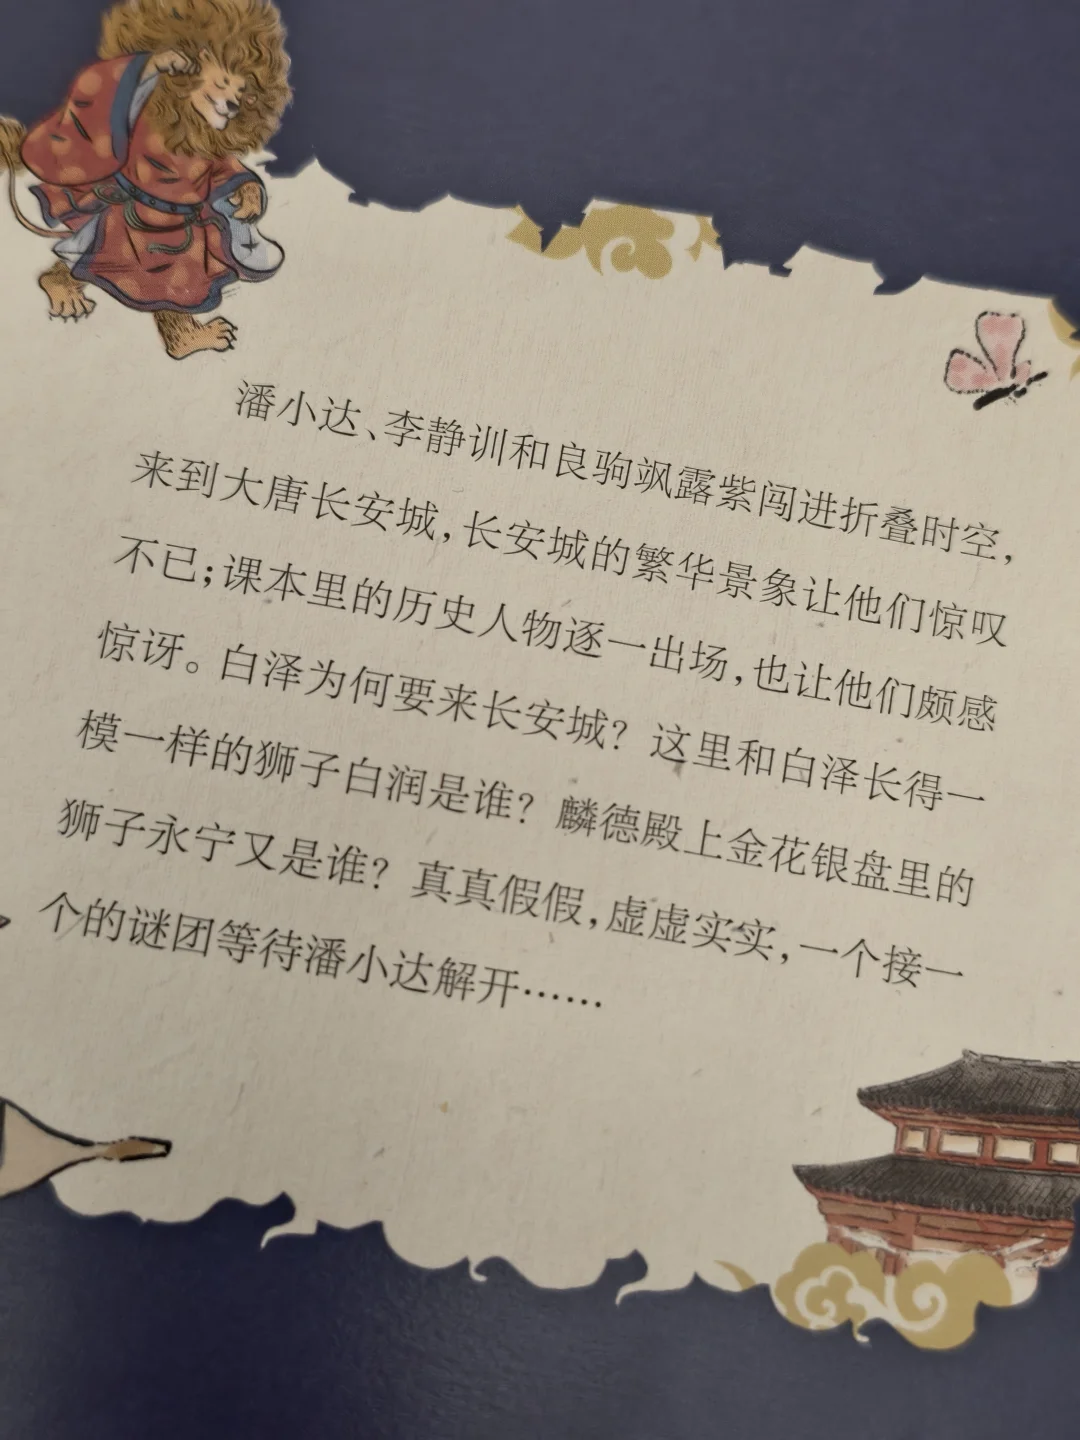 潘小达、李静训和良驹飒露紫闯进折叠时空，
来到大唐长安城，长安城的繁华景象让他们惊叹
不已；课本里的历史人物逐一出场，也让他们颇感
惊讶。白泽为何要来长安城？这里和白泽长得一
模一样的狮子白润是谁？麟德殿上金花银盘里的
狮子永宁又是谁？真真假假，虚虚实实，一个接一
个的谜团等待潘小达解开……